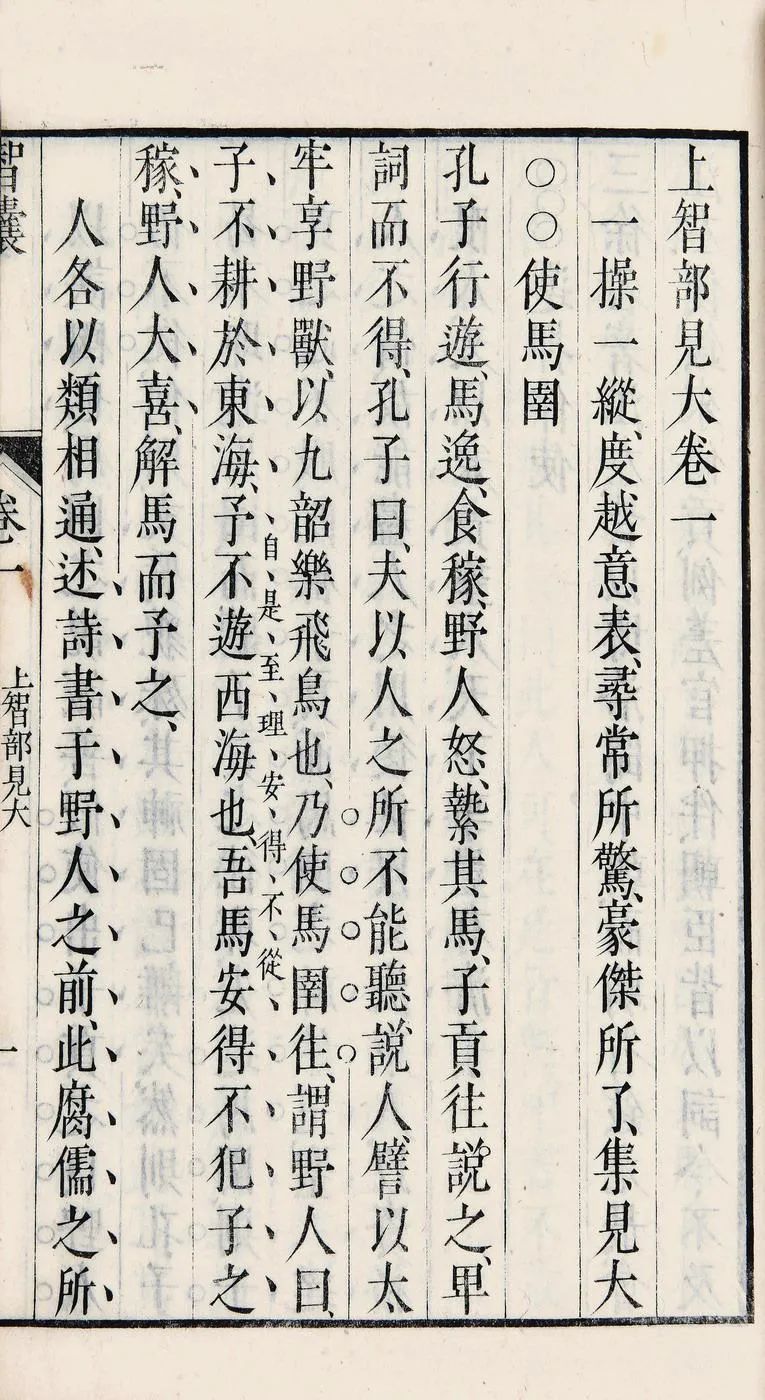 上智部見大卷一
一操一縱、度越意表、尋常所驚、豪傑所了、集見大
○○使馬圉
孔子行遊、馬逸、食稼、野人怒、縶其馬、子貢往說之、卑
詞而不得、孔子曰、夫以人之所不能聽說人、譬以太
牢享野獸、以九韶樂飛鳥也、乃使馬圉往、謂野人曰、
子不耕於東海、予不遊西海也、吾馬安得不犯子之
自是至理安得不從
稼、野人大喜、解馬而予之、
人各以類相通、述詩書于野人之前、此腐儒之所
智囊 卷一 上智部見大 一